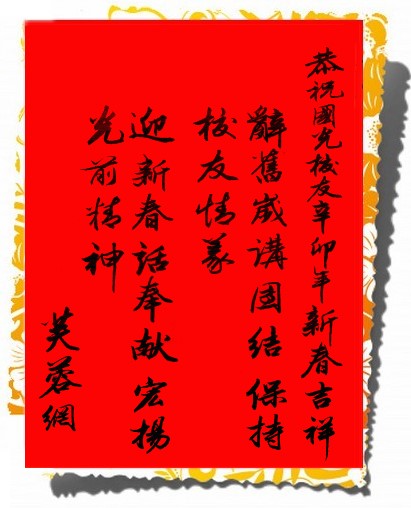 恭祝國光校友辛卯年新春吉祥
辭舊崴講团结保持
校友情義
迎新春話奉献宏揚
光前精神
芙蓉網